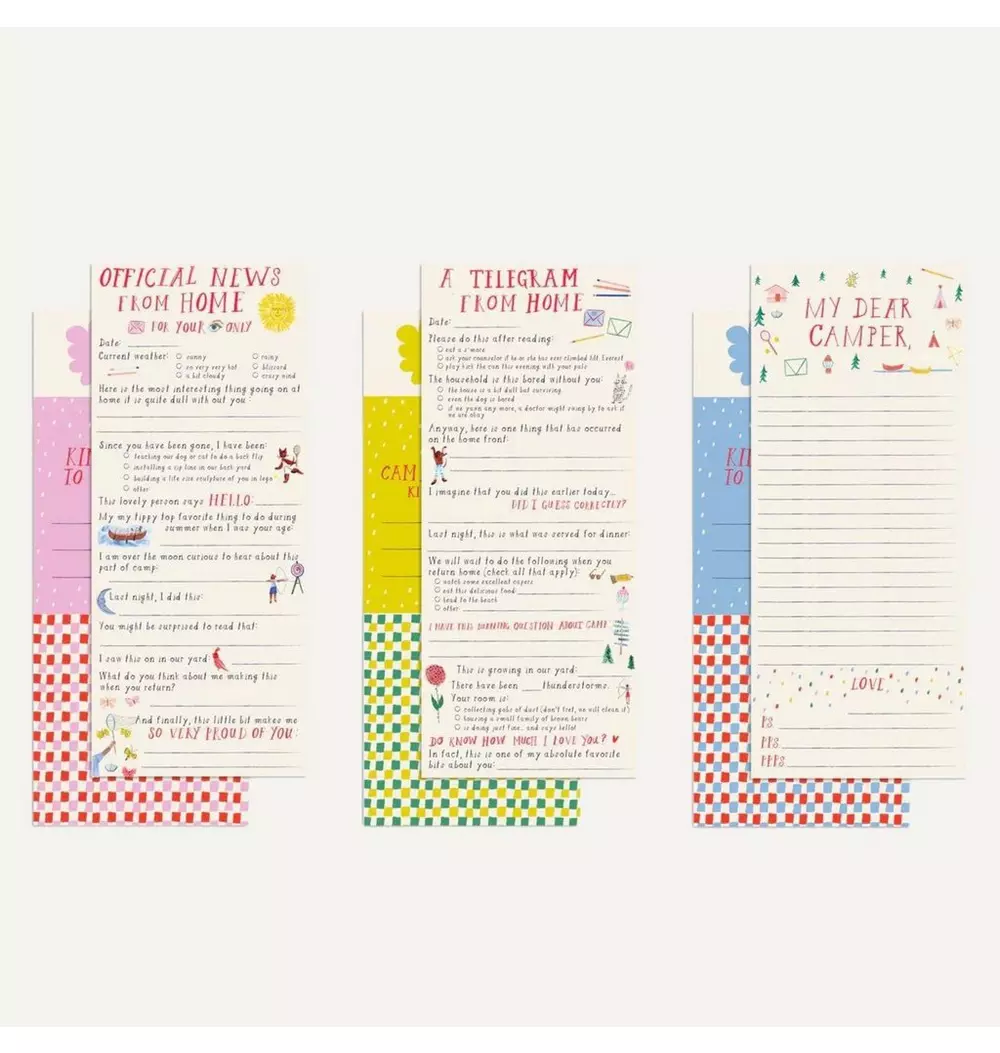 OFFICIAL NEWS
FROM HOME
FOR YOUR ONLY
Date:
Current weather:
sunny
so very very hot
a bit cloudy
rainy
blizzard
crazy wind
Here is the most interesting thing going on at
home it is quite dull with out you:
Since you have been gone, I have been:
teaching our dog or cat to do a back flip
installing a zip line in our back yard
building a life size sculpture of you in lego
other
This lovely person says HELLO:
My my tippy top favorite thing to do during
summer when I was your age:
I am over the moon curious to hear about this
part of camp:
Last night, I did this:
You might be surprised to read that:
I saw this on in our yard
What do you think about me making this
when you return?
And finally, this little bit makes me
SO VERY PROUD OF YOU:
KI
TO
A TELEGRAM
FROM HOME
Date:
Please do this after reading:
eat a s'more
ask your counselor if he or she has ever climbed Mt. Everest
play kick the can this evening with your pals
The household is this bored without you:
the house is a bit dull but surviving
even the dog is bored
if we yawn any more, a doctor might swing by to ask if
we are okay
Anyway, here is one thing that has occurred
on the home front:
I imagine that you did this earlier today...
DID I GUESS CORRECTLY?
Last night, this is what was served for dinner:
We will wait to do the following when you
return home (check all that apply):
watch some excellent capers
eat this delicious food
head to the beach
other
I HAVE THIS BURNING QUESTION ABOUT CAMP
This is growing in our yard:
There have been ____ thunderstorms.
Your room is:
collecting gobs of dust (don't fret, we will clean it)
housing a small family of brown bears
is doing just fine.. and says hello!
DO KNOW HOW MUCH I LOVE YOU?
In fact, this is one of my absolute favorite
bits about you:
CAM
KI
MY DEAR
CAMPER,
LOVE
PS.
PPS.
PPPS.
KI
TO